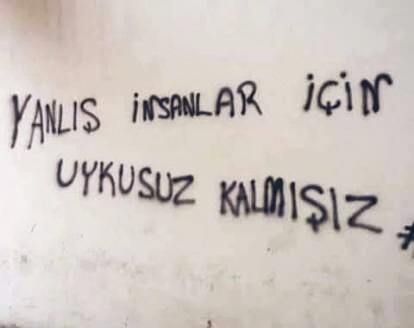 YANLIS İNSANLAR İÇİN
UYKUSUZ KALMIŞIZ